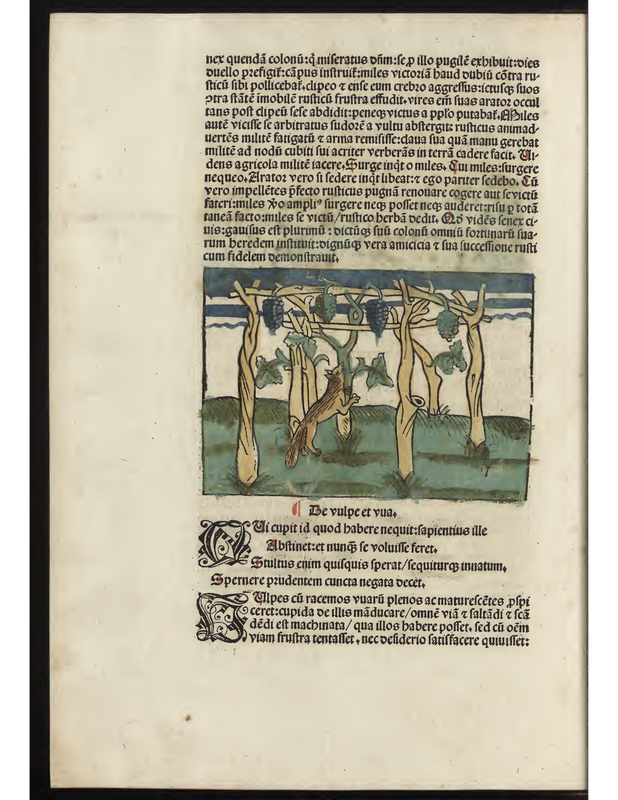 nex quendā colonū:q̄ miſeratus dn̄m:ſe,ꝓ illo pugilē exhibuit:dies
duello prefigit᷑:cāpus inſtruit᷑:miles victoriā haud dubiū cōtra ru⸗
ſticū ſibi pollicebat᷑.clipeo ⁊ enſe eum crebro aggreſſus:ictuſq; ſuos
cōtra ſtātē imobilē ruſticū fruſtra effudit.vires em̄ ſuas arator occul
tans poſt clipeū ſeſe abdidit:peneq;victus a pplo putabat᷑.Miles
autē viciſſe ſe arbitratus ſudorē a vultu abſtergit:ruſticus animad⸗
uertēs militē fatigatū ⁊ arma remiſiſſe:claua ſua quā manu gerebat
militē ad nodū cubiti ſui acriter verberās in terrā cadere facit. Ui⸗
dens agricola militē iacere.Surge inq̄t o miles. Cui miles:ſurgere
nequeo.Arator vero ſi ſedere inq̄t libeat:⁊ ego pariter ſedebo. Cū
vero impellētes p̄fecto ruſticus pugnā renouare cogere aut ſe victū
fateri:miles ꝟo ampliꝰ ſurgere neq; poſſet neq; auderet:riſu ꝑ totā
taneā facto:miles ſe victū/ruſtico herbā dedit. Qd̓ vidēs ſenex ci⸗
uis:gauiſus eſt plurimū : dictūq; ſuū colonū omniū fortunarū ſua⸗
rum heredem inſtituit:dignūq; vera amicicia ⁊ ſua ſucceſſione ruſti
cum fidelem demonſtrauit.
¶ De vulpe et vua.
QUi cupit id quod habere nequit:ſapientius ille
Abſtinet:et nunq̄ ſe voluiſſe feret.
Stultus enim quiſquis ſperat/ſequiturq; innatum.
Spernere prudentem cuncta negata decet.
VUlpes cū racemos vuarū plenos ac matureſcētes ꝓſpi
ceret:cupida de illis māducare/omnē viā ⁊ ſaltādi ⁊ ſcā
dēdi eſt machinata/ qua illos habere poſſet. ſed cū oēm
viam fruſtra tentaſſet , nec deſiderio ſatiſfacere quiuiſſet: